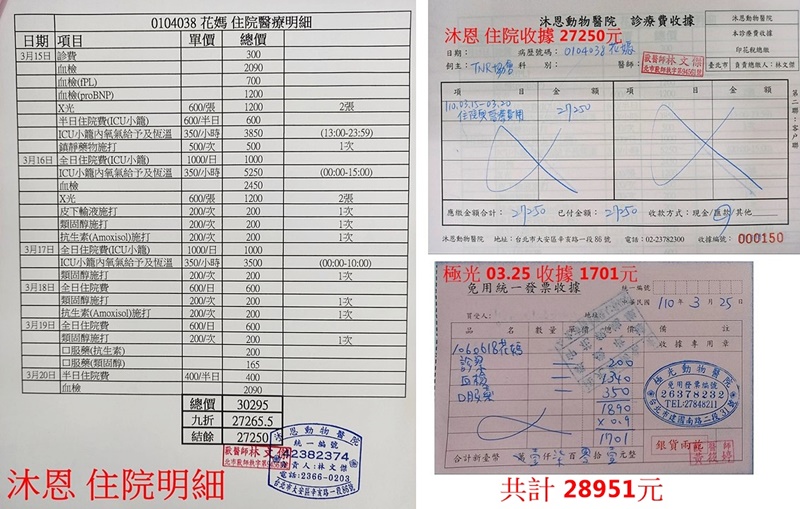 0104038 花媽 住院醫療明細
日期 項目 單價 總價
3月15日 診費 300
血檢 2090
血檢(fPL) 700
血檢(proBNP) 1200
X光 600/張 1200 2張
半日住院費(ICU小籠) 600/半日 600
ICU小籠內氧氣給予及恆溫 350/小時 3850 (13:00-23:59)
鎮靜藥物施打 500/次 500 1次
3月16日 全日住院費(ICU小籠) 1000/日 1000
ICU小籠內氧氣給予及恆溫 350/小時 5250 (00:00-15:00)
血檢 2450
X光 600/張 1200 2張
皮下輸液施打 200/次 200 1次
類固醇施打 200/次 200 1次
抗生素(Amoxisol)施打 200/次 200 1次
3月17日 全日住院費(ICU小籠) 1000/日 1000
ICU小籠內氧氣給予及恆溫 350/小時 3500 (00:00-10:00)
類固醇施打 200/次 200 1次
3月18日 全日住院費 600/日 600
類固醇施打 200/次 200 1次
抗生素(Amoxisol)施打 200/次 200 1次
3月19日 全日住院費 600/日 600
類固醇施打 200/次 200 1次
口服藥(抗生素) 200
口服藥(類固醇) 165
3月20日 半日住院費 400/半日 400
血檢 2090
總價 30295
九折 27265.5
結餘 27250
沐恩動物醫院
統一編號
42382374
負責人:林文傑
電話:2366-0203
台北市大安區辛亥路一段86號
獸醫師林文傑
沐恩 住院明細
沐恩動物醫院 診療費收據
沐恩 住院收據 27250元
沐恩動物醫院
本診療收據
印花稅總繳
臺北市 負責總繳人:林文傑
日期: 病歷號碼: 0104038花媽
飼主: TNR協會 科別: 醫師: 獸醫師林文傑
項目 金額 項目 金額
110.03.15-03.20 27250
住院與醫療費用
第二聯:客戶聯
應繳金額合計: 27250 已付金額: 27250 收款方式:現金/匯款/其他
沐恩動物醫院 地址:台北市大安區辛亥路一段86號 電話:02-23782300 收據編號: 000150
極光 03.25 收據 1701元
免用統一發票收據
統一編號
中華民國 110年3月25日
買受人: 地址:
品名 數量 單價 總價 備註
收據專用章
1060618花媽
診察 200
血檢 1340
口服藥 350
1890
x0.9
1701
極光動物醫院
免用發票編號
26378232
TEL:27848211
台北市建國南路二段31號
銀貨兩訖
合計新臺幣 萬壹仟柒佰零拾壹元整
共計 28951元